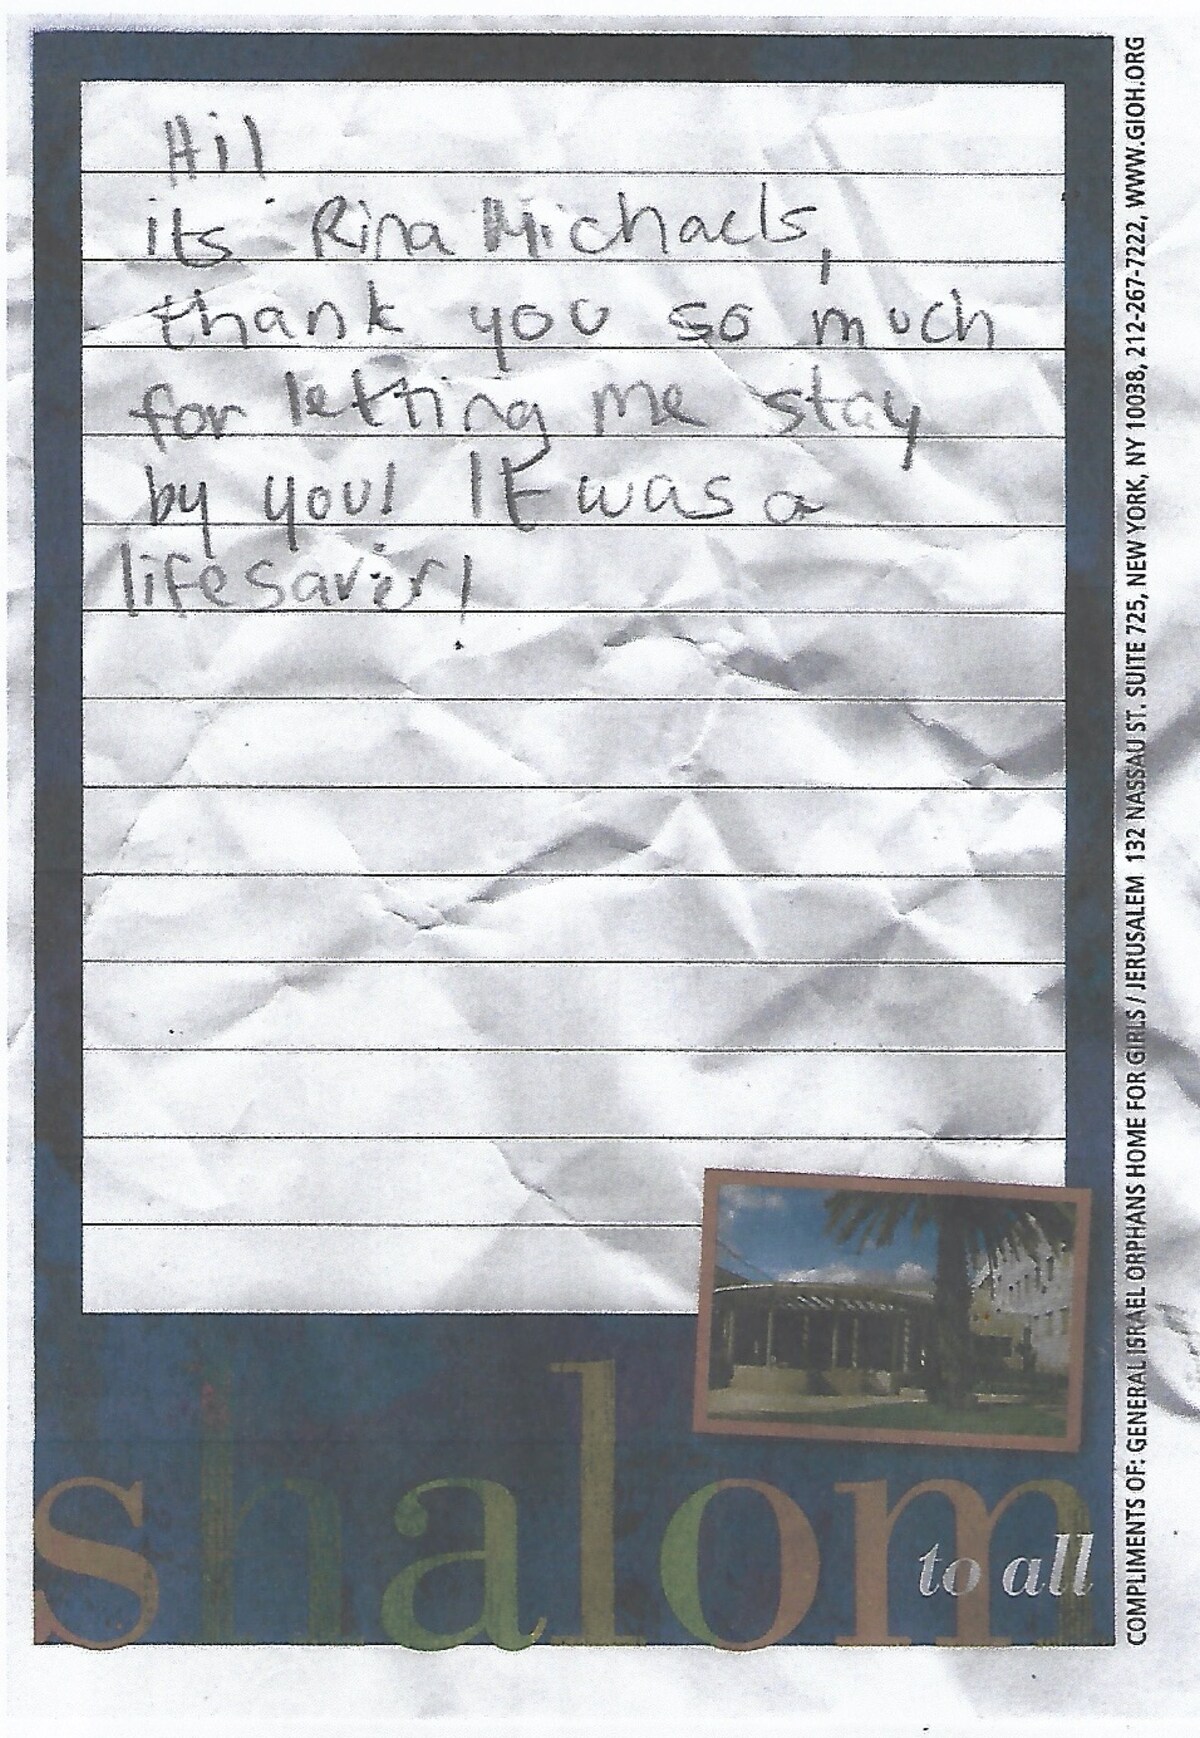 Hi!
its Rina Michaels,
thank you so much
for letting me stay
by you! It was a
lifesaver!
shalom
to all
COMPLIMENTS OF: GENERAL ISRAEL ORPHANS HOME FOR GIRLS / JERUSALEM 132 NASSAU ST. SUITE 725, NEW YORK, NY 10038, 212-267-7222, WWW.GIOH.ORG